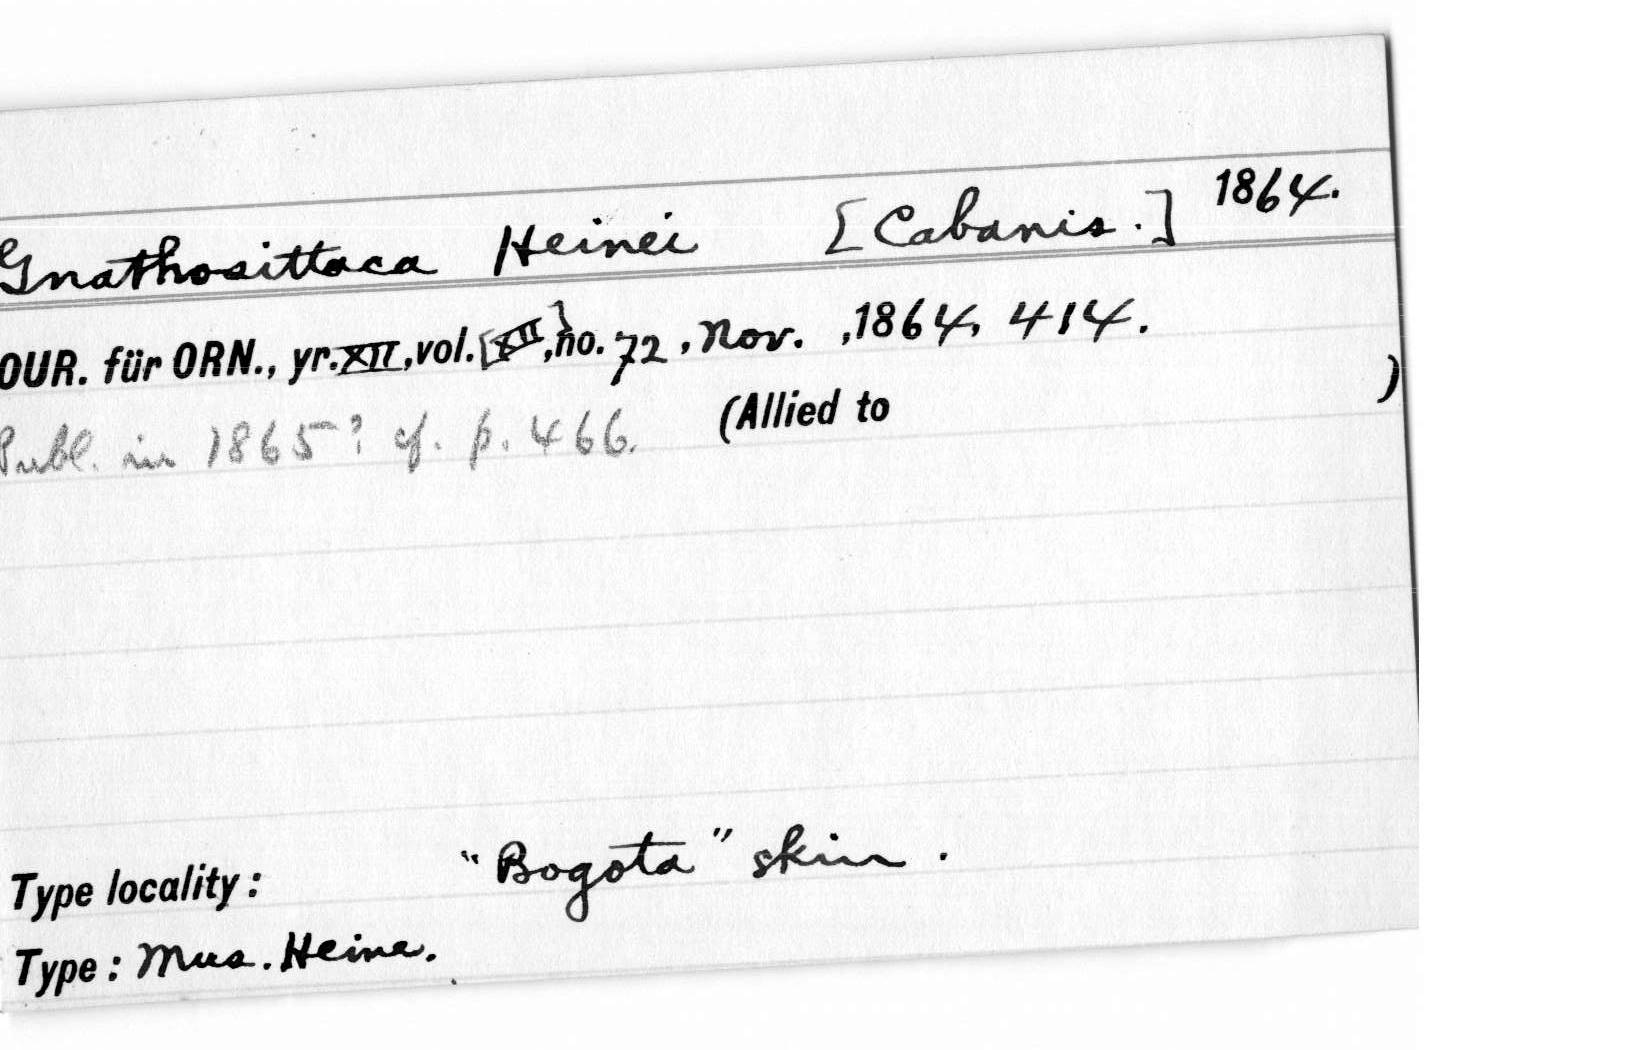 Gnathosittaca Heinei [Cabanis.] 1864.
OUR. für ORN., yr. XII, vol. [XII], no. 72, Nov. ,1864, 414.
Publ. in 1865? cf. p. 466. (Allied to )
Type locality: "Bogota" skin.
Type: Mus. Heine.